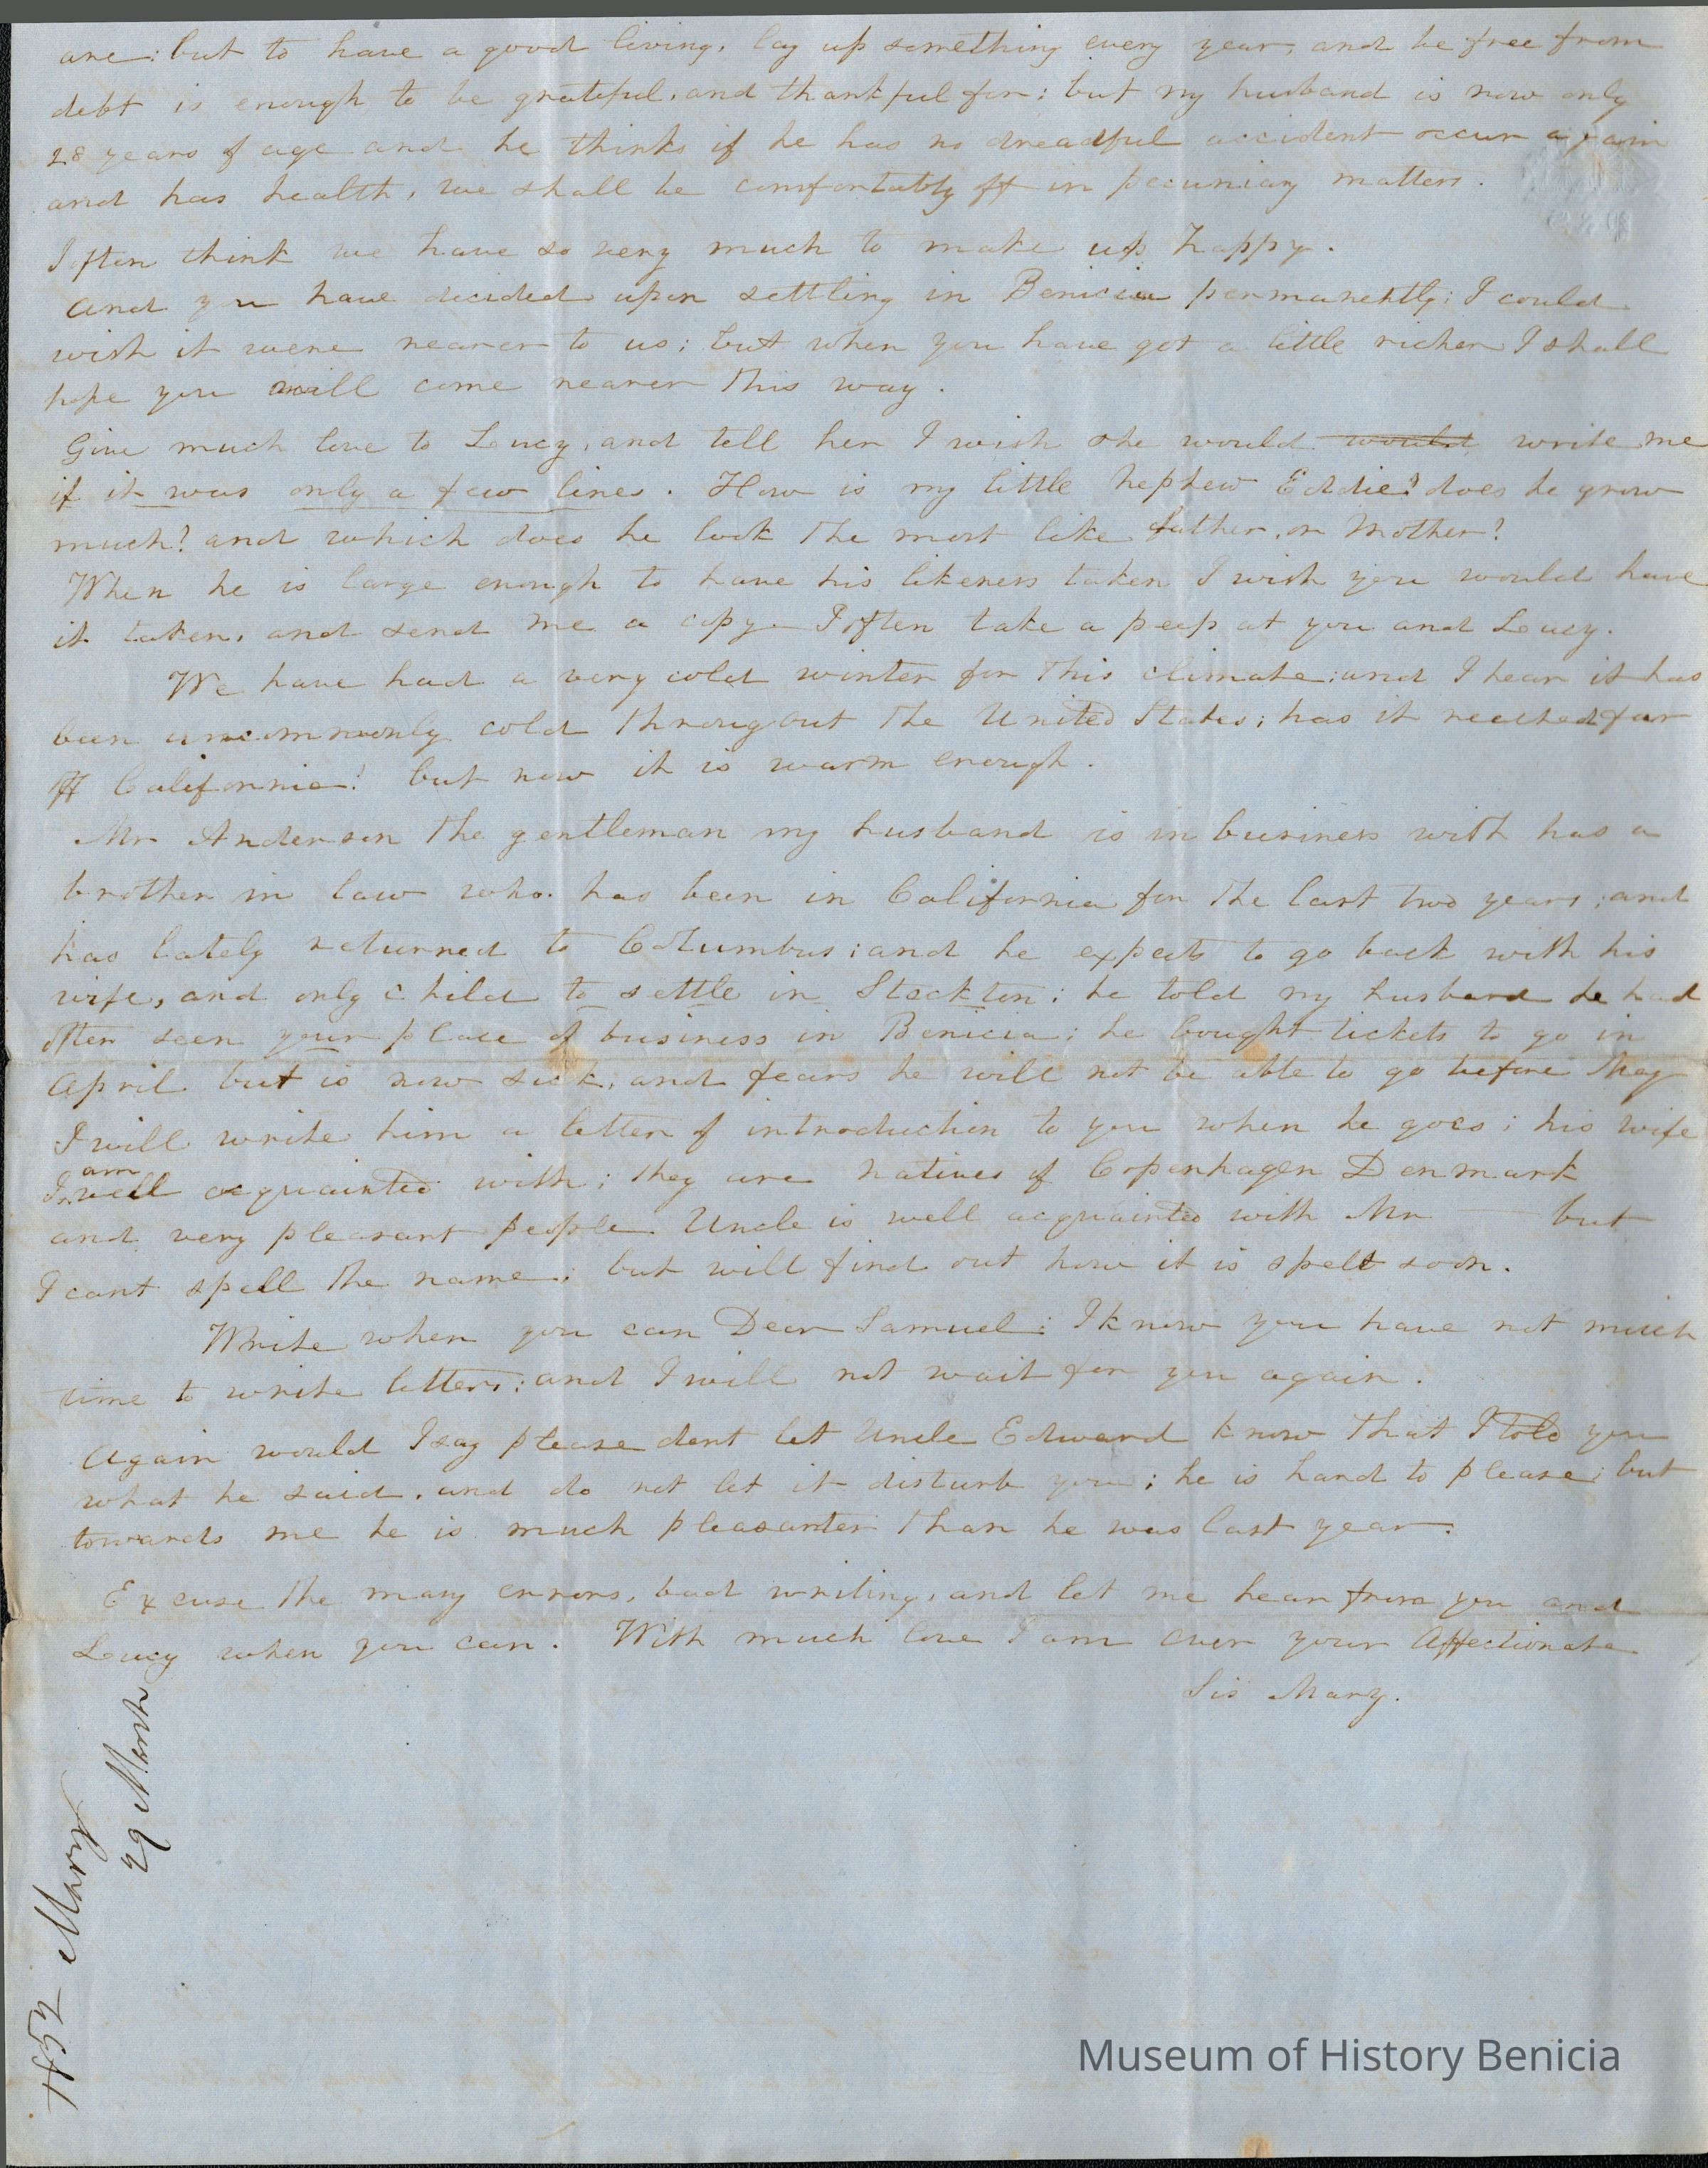 are: but to have a good living, lay up something every year, and be free from
debt is enough to be grateful, and thankful for: but my husband is now only
28 years of age and he thinks if he has no dreadful accident occur again
and has health, we shall be comfortably off in pecuniary matters.
I often think we have so very much to make us happy.
And you have decided upon settling in Benicia permanently: I could
wish it were nearer to us; but when you have got a little richer I shall
hope you will come nearer this way.
Give much love to Loucy, and tell her I wish she would would write me
if it was only a few lines. How is my little Nephew Eddie? does he grow
much? and which does he look the most like father, or Mother?
When he is large enough to have his likeness taken I wish you would have
it taken, and send me a copy. I often take a peep at you and Loucy.
We have had a very cold winter for this climate: and I hear it has
been uncommonly cold througout the United States; has it reached far
off California? but now it is warm enough.
Mr Anderson the gentleman my husband is in business with has a
brother in law who has been in California for the last two years; and
has lately returned to Columbus; and he expects to go back with his
wife, and only child to settle in Stockton: he told my husband he had
often seen your place of business in Benicia; he bought tickets to go in
April but is now sick, and fears he will not be able to go before May
I will write him a letter of introduction to you when he goes; his wife
am
I well acquainted with; they are natives of Copenhagen Denmark
and very pleasant people. Uncle is well acquainted with Mr — but
I cant spell the name; but will find out how it is spelt soon.
Write when you can Dear Samuel: I know you have not much
time to write letters: and I will not wait for you again.
Again would I say please dont let Uncle Edward know that I told you
what he said, and do not let it disturb you; he is hard to please; but
towards me he is much pleasanter than he was last year.
Excuse the many errors, bad writing, and let me hear from you and
Loucy when you can. With much love I am ever your Affectionate
Sis Mary.
1852 Mary
29 March
Museum of History Benicia